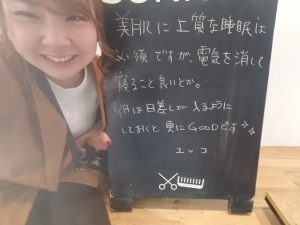 美肌に上質な睡眠は
必須ですが、電気を消して
寝ること良いとか。
朝は日差しが入るように
しておくと更にGOODです☆☆
エッコ